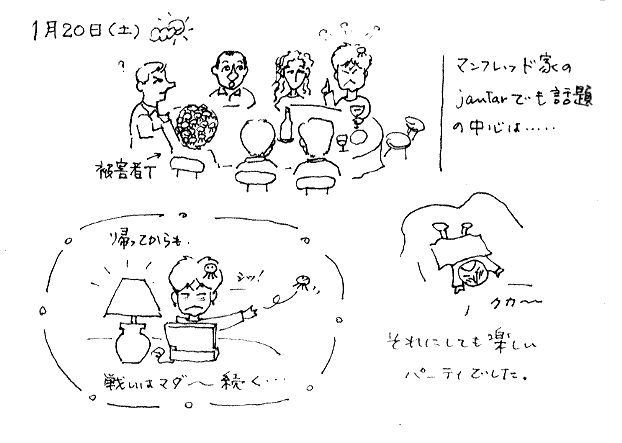 1月20日(土)
マンフレッド家の
jantarでも話題
の中心は.....
?
被害者T
帰ってからも.
シッ!
戦いはマダ〜続く...
クカ〜
それにしても楽しい
パーティでした。